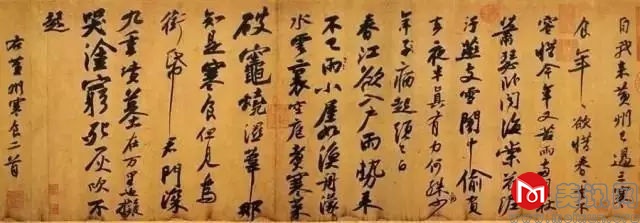 自我來黃州已過三
食年〻欲惜春
容惜今年又苦雨兩
蕭瑟臥聞海棠花泥
汙燕支雪闇中偷負
去夜半真有力何殊少
年子病起頭已白
春江欲入戶雨勢來
不已雨小屋如漁舟濛〻
水雲裏空庖煮寒菜
破竈燒濕葦那
知是寒食但見烏
銜帋君門深
九重墳墓在万里也擬
哭塗窮死灰吹不
起
右黃州寒食二首